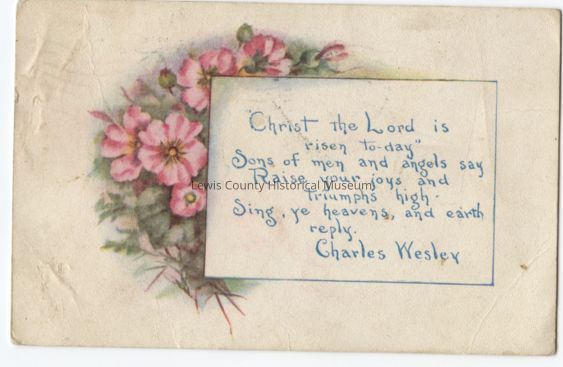 "Christ the Lord is
risen to-day"
Sons of men and angels say
Raise your joys and
Lewis County Historical Museum
Triumphs high.
Sing, ye heavens, and earth
reply.
Charles Wesley